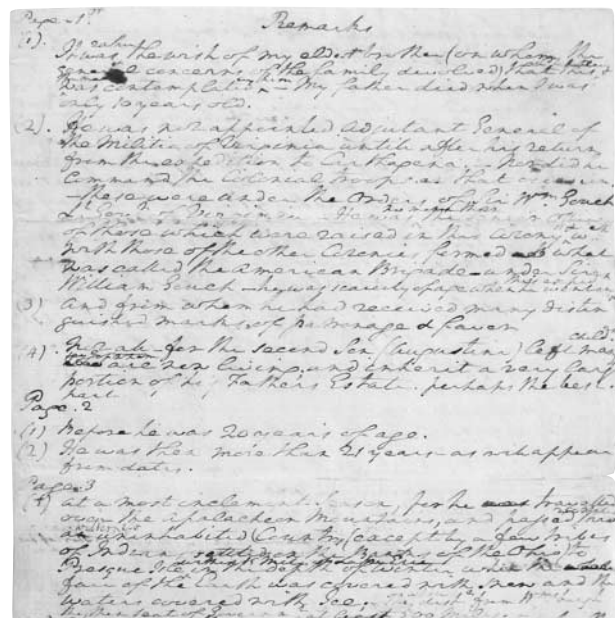 Page 1st Remarks
(1). It was the wish of my eldest brother (on whom the
general concerns of the family devolved) that this
was contemplation — My father died when I was
only 10 years old.
(2). He was not appointed Adjutant General of
the Militia of Virginia untill after his return
from the expedition to Carthagena. — Nor did he
Command the Colonial troops on that occasion
— these were under the Orders of Sir Wm Gouch
Lt. Govr of Virginia — He was no other than
of those which were raised in this Colony & wch
with those of the other Colonies formed what
was called the American Brigade — under Sir
William Gouch — he was scarcely of age when
(3) And from whom he had received many distin
guished marks of patronage & favor
(4). Not all — for the second Son (Augustine) left many
child. are now living and inherit a very large
portion of his Fathers Estate. perhaps the best
part.
Page. 2
(1) Before he was 20 years of age.
(2) He was then more than 21 years — as will appear
from dates.
Page. 3
(4) at a most inclement Season, for he travelled
over the Apalacheon Mountains, and passed
an uninhabited Country (except by a few tribes
of Indians settled on the Banks of the Ohio) to
Presque Isle in the depth of winter while the
face of the Earth was covered with snow and the
waters covered with Ice;